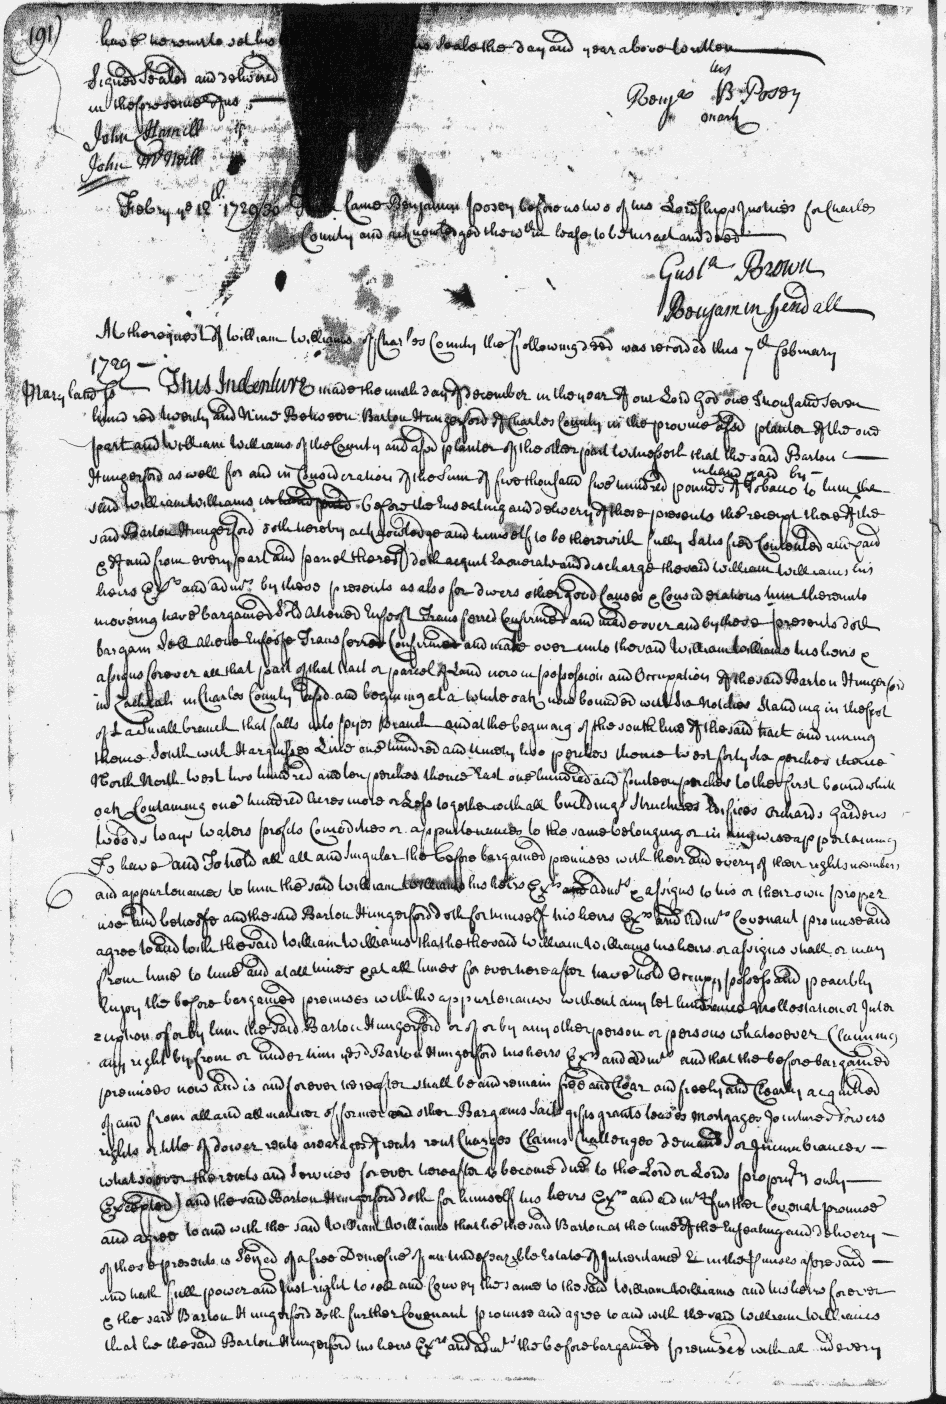 (191)
have hereunto set his seale the day and year above written
Signed Sealed and delivered his
in the presence of us Benja B Posey
John Hamill mark
John McNeill
Febry ye 12th 1729/30 Came Benjamin Posey before us two of his Lordships Justices for Charles
County and acknowledged the wthin lease to be his act and deed
Gusta Brown
Benjamin Fendall
At the request of William Williams of Charles County the following deed was recorded this 7th february
1729
Maryland ss This Indenture made the day of december in the year of our Lord God one thousand Seven
hundred twenty and Nine Between Barton Hungerford of Charles County in the province afsd planter of the one
part and William Williams of the County and afsd planter of the other part Witnesseth that the said Barton
Hungerford as well for and in Consideration of the Sum of five thousand five hundred pounds of Tobacco to him in hand paid by the
said William Williams before the Ensealing and delivery of these presents the receipt thereof the
said Barton Hungerford doth hereby acknowledge and himself to be therewith fully Satisfied Contented and paid
& of and from every part and parcel thereof doth acquit Exonerate and discharge the said William Williams his
heirs Exrs and admrs by these presents as also for divers other good Causes & Considerations him thereunto
moving have bargained Sold Aliened Enfeoft Transferred Confirmed and made over and by these presents doth
bargain Sell Aliene Enfeoffe Transferred Confirmed and made over unto the said William Williams his heirs &
assigns forever all that part of that tract or parcel of Land now in possession and Occupation of the said Barton Hungerford
in Zachiah in Charles County afsd and begining at a white oak now bounded with Six Notches Standing in the fork
of a small branch that falls into Pyes Branch and at the begining of the south line of the said tract and runing
thence South with Hargisses Line one hundred and ninety two perches thence West forty six perches thence
North North West two hundred and ten perches thence East one hundred and fourteen perches to the first bound white
oak Containing one hundred Acres more or Less together with all buildings Structures Edifices orchards Gardens
woods ways waters profits Comodities or appurtenances to the same belonging or in any wise appertaining
To have and To hold all all and Singular the before bargained premises with their and every of their rights members
and appurtenances to him the said William Williams his heirs Exrs and admrs & assigns to his or their own proper
use and behoofe and the said Barton Hungerford doth for himself his heirs Exrs and Admrs Covenant promise and
agree to and with the said William Williams that he the said William Williams his heirs or assigns shall or may
from time to time and at all times & at all times for ever hereafter have hold Occupy possess and peacibly
Enjoy the before bargained premises with the appurtenances without any let hindrance Mollestation or Inter
ruption of or by him the Said Barton Hungerford or of or by any other person or persons whatsoever Claiming
any right by from or under him ye sd Barton Hungerford his heirs Exrs and admrs and that the before bargained
premises now and is and forever hereafter shall be and remain free and Clear and freely and Clearly acquitted
of and from all and all manner of former and other Bargains Sails gifts grants leases Mortgages Jointures dowers
rights or title of dower rents arearages of rents rent Charges Claims Challenges demands or Incumbrances
whatsoever the rents and Services for ever hereafter to become due to the Lord or Lords only
Excepted) and the said Barton Hungerford doth for himself his heirs Exrs and admrs further Covenat promise
and agree to and with the said William Williams that he the said Barton at the time of the Ensealing and delivery
of these presents is Seized of a free Demesne of an undefeazible Estate of Inheritance & in the premises aforesaid
and hath full power and Just right to sell and Convey the same to the said William Williams and his heirs forever
& the said Barton Hungerford doth further Covenant promise and agree to and with the said William Williams
that he the said Barton Hungerford his heirs Exrs and admrs the before bargained premises with all and every